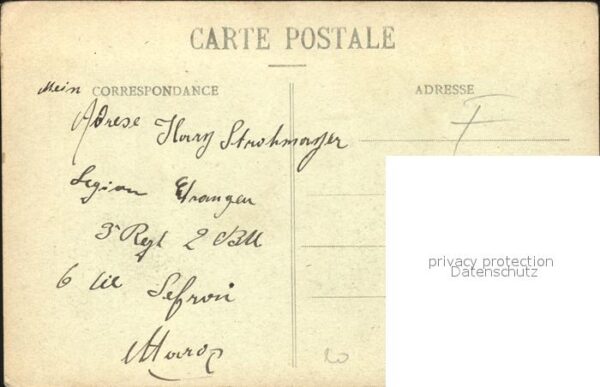 CARTE POSTALE
Mein CORRESPONDANCE
ADRESSE
Adrese Harry Strohmayer
Legion Etranger
3 Regt 2 Bll
6 Cie Sefroui
Maroc
privacy protection
Datenschutz
20